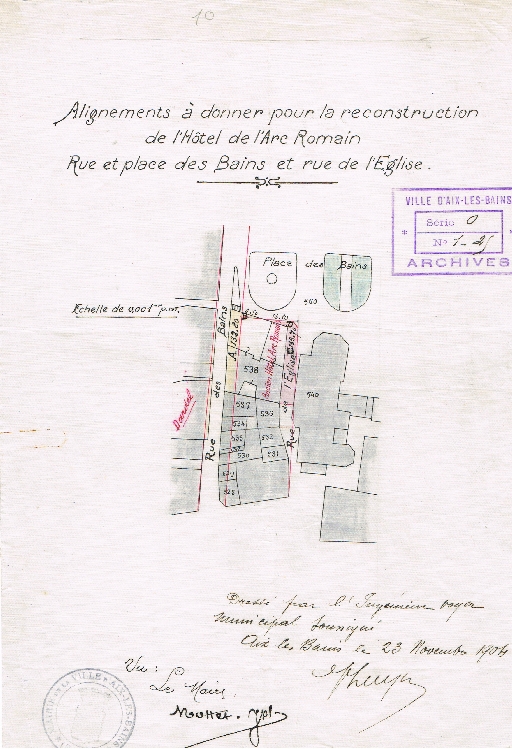 10
Alignements à donner pour la reconstruction
de l'Hôtel de l'Arc Romain
Rue et place des Bains et rue de l'Eglise.
VILLE D'AIX-LES-BAINS
Série O
N° 1-25
ARCHIVES
Place des Bains
540
Echelle de 0,001 m p.m.
Rue des Bains
A 132.20
538
Rue de l'Eglise
540
537
536
534
535
532
530
531
528
Dressé par l'Ingénieur voyer
municipal soussigné
Aix les Bains le 23 Novembre 1904
Vu:
Le Maire,
Mottet.